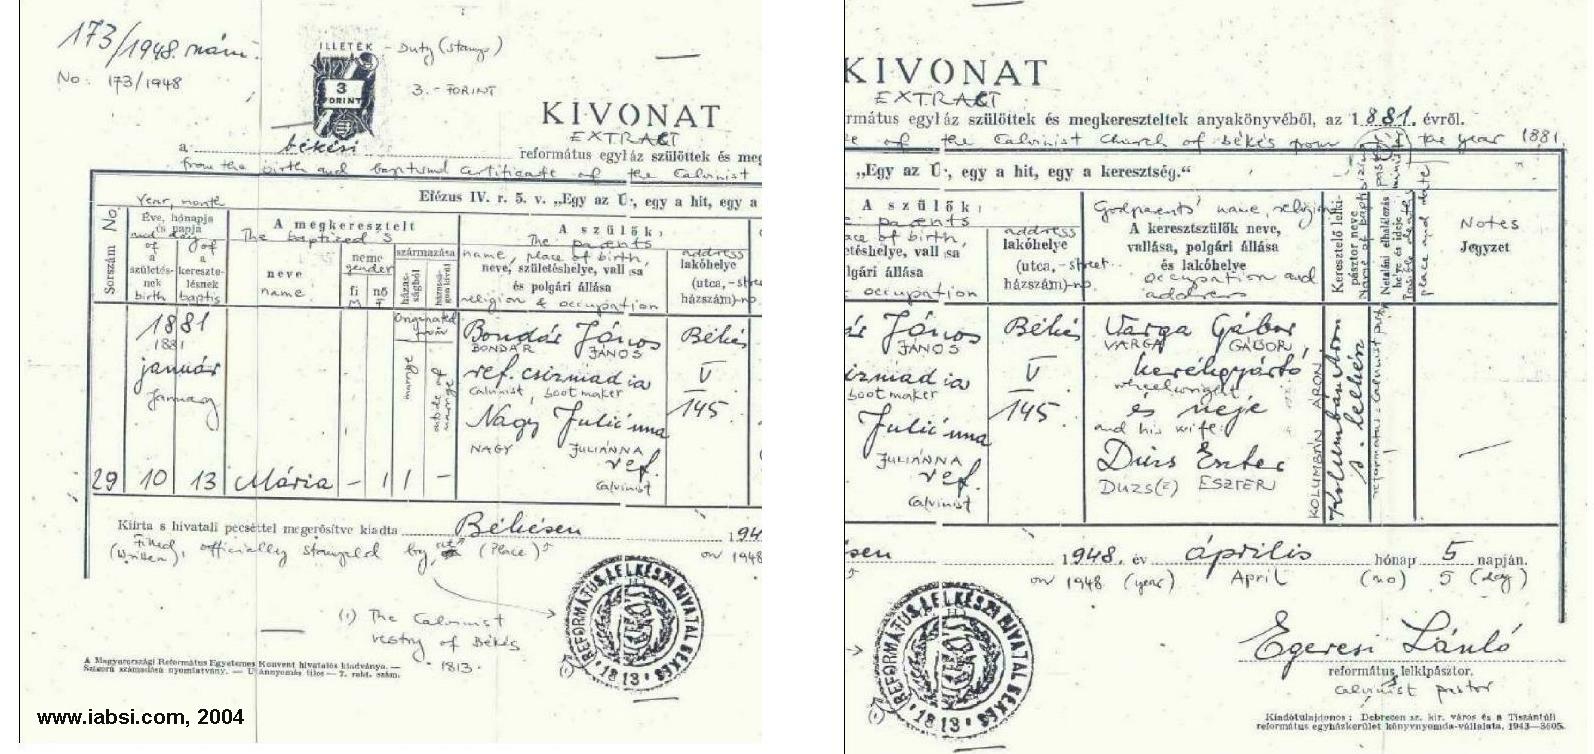 173/1948. szám.
No: 173/1948
ILLETÉK - Duty (stamp)
3
FORINT
3.- FORINT
KIVONAT
EXTRACT
a békési református egyház szülöttek és meg
from the birth and baptismal certificate of the Calvinist
Efézus IV. r. 5. v. „Egy az Úr, egy a hit, egy a
Sorszám No.
Year, month
Éve, hónapja és napja
and day
of a születésnek birth
of a keresztelésnek baptis
A megkeresztelt
The baptized's
neve
name
neme
gender
fi
M
nő
F
származása
házasságból
házasságon kívül
Originated from
marriage
outside of marriage
A szülők:
The parents
name, place of birth,
neve, születéshelye, vallása
és polgári állása
religion & occupation
address
lakóhelye
(utca, -street
házszám)-no.
1881
1881
január
January
29 10 13 Mária - 1 1 -
Bondár János
BONDÁR JÁNOS
ref. csizmadia
Calvinist, bootmaker
Nagy Juliánna
NAGY JULIÁNNA
ref.
Calvinist
Békés
V
145
Kiírta s hivatali pecséttel megerősítve kiadta Békésen 194
Filled (Written), officially stamped by (Place) on 1948
(1) The Calvinist
vestry of Békés
1813.
REFORMÁTUS LELKÉSZI HIVATAL BÉKÉS
• 1813 •
(1)
A Magyarországi Református Egyetemes Konvent hivatalos kiadványa. —
Szigorú számadású nyomtatvány. — Utánnyomás tilos — 7. rakt. szám.
www.iabsi.com, 2004
KIVONAT
EXTRACT
rmátus egyház szülöttek és megkereszteltek anyakönyvéből, az 1881. évről.
of the Calvinist Church of Békés from the year 1881.
„Egy az Úr, egy a hit, egy a keresztség."
A szülők:
parents
ace of birth,
letéshelye, vallása
lgári állása
occupation
address
lakóhelye
(utca, -street
házszám)-no.
Godparents' name, religion
A keresztszülők neve,
vallása, polgári állása
és lakóhelye
occupation and
address
Keresztelő lelkipásztor neve
Name of baptising pastor
Netaláni elhalálozás helye és ideje
Possible death's place and date
Notes
Jegyzet
ár János
JÁNOS
izmadia
bootmaker
Juliánna
JULIÁNNA
ref.
Calvinist
Békés
V
145.
Varga Gábor
VARGA GÁBOR,
kerékgyártó
wheelwright
és neje
and his wife:
Dúzs Eszter
DUZS(Z) ESZTER
KOLUMBÁN ÁRON
Kolumbán Áron
s. lelkész
ésen 1948. év április hónap 5 napján.
on 1948 (year) April (mo) 5 (day)
REFORMÁTUS LELKÉSZI HIVATAL BÉKÉS
• 1813 •
(1)
Egeresi László
református lelkipásztor.
Calvinist pastor
Kiadótulajdonos: Debrecen sz. kir. város és a Tiszántúli
református egyházkerület könyvnyomda-vállalata. 1943—3605.